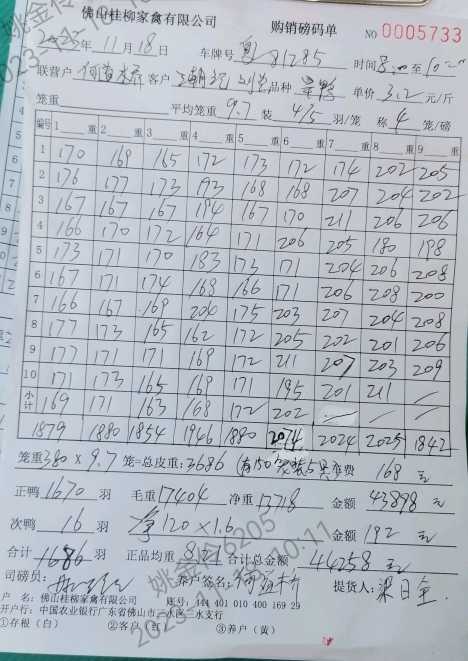 佛山桂柳家禽有限公司 购销磅码单 NO 0005733
2023年11月18日 车牌号 粤 81285 时间 8:00 至 10:
联营户 客户 品种 单价 3.2 元/斤
笼重 平均笼重 9.7 装 4/5 羽/笼 称 4 笼/磅
编号 1 重 2 重 3 重 4 重 5 重 6 重 7 重 8 重 9 重
1 170 169 165 172 173 172 174 202 205
2 176 177 173 193 168 168 207 204 202
3 167 167 167 194 167 170 211 206 206
4 166 170 172 164 171 206 205 180 198
5 173 171 170 183 173 171 204 206 208
6 167 171 174 168 166 171 206 208 200
7 166 167 169 206 175 203 207 204 208
8 177 173 165 162 172 205 202 201 206
9 177 171 171 169 172 211 207 203 209
10 171 173 165 169 171 195 201 211 /
小计 169 171 163 168 172 202 — / /
1879 1880 1854 1946 1880 2074 2024 2025 1842
笼重 380 × 9.7 笼=总皮重: 3686 费 168 元
正鸭 1670 羽 毛重 17404 净重 13718 金额 43898 元
次鸭 16 羽 净 120 × 1.6 金额 192 元
合计 1686 羽 正品均重 8.21 合计总金额 44258 元
司磅员: 养户签名: 提货人: 梁日全
户 名: 佛山桂柳家禽有限公司 账号: 444 401 010 400 169 29
开户行: 中国农业银行广东省佛山市三水区三水支行
①存根(白) ②客户(红) ③养户(黄)
姚金伶6205
2023-11-18 10:11